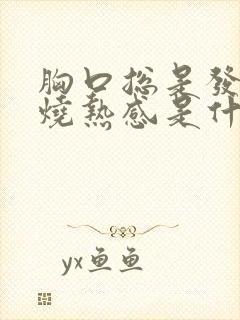 胸口總是發
燒熱感是什
yx鱼鱼